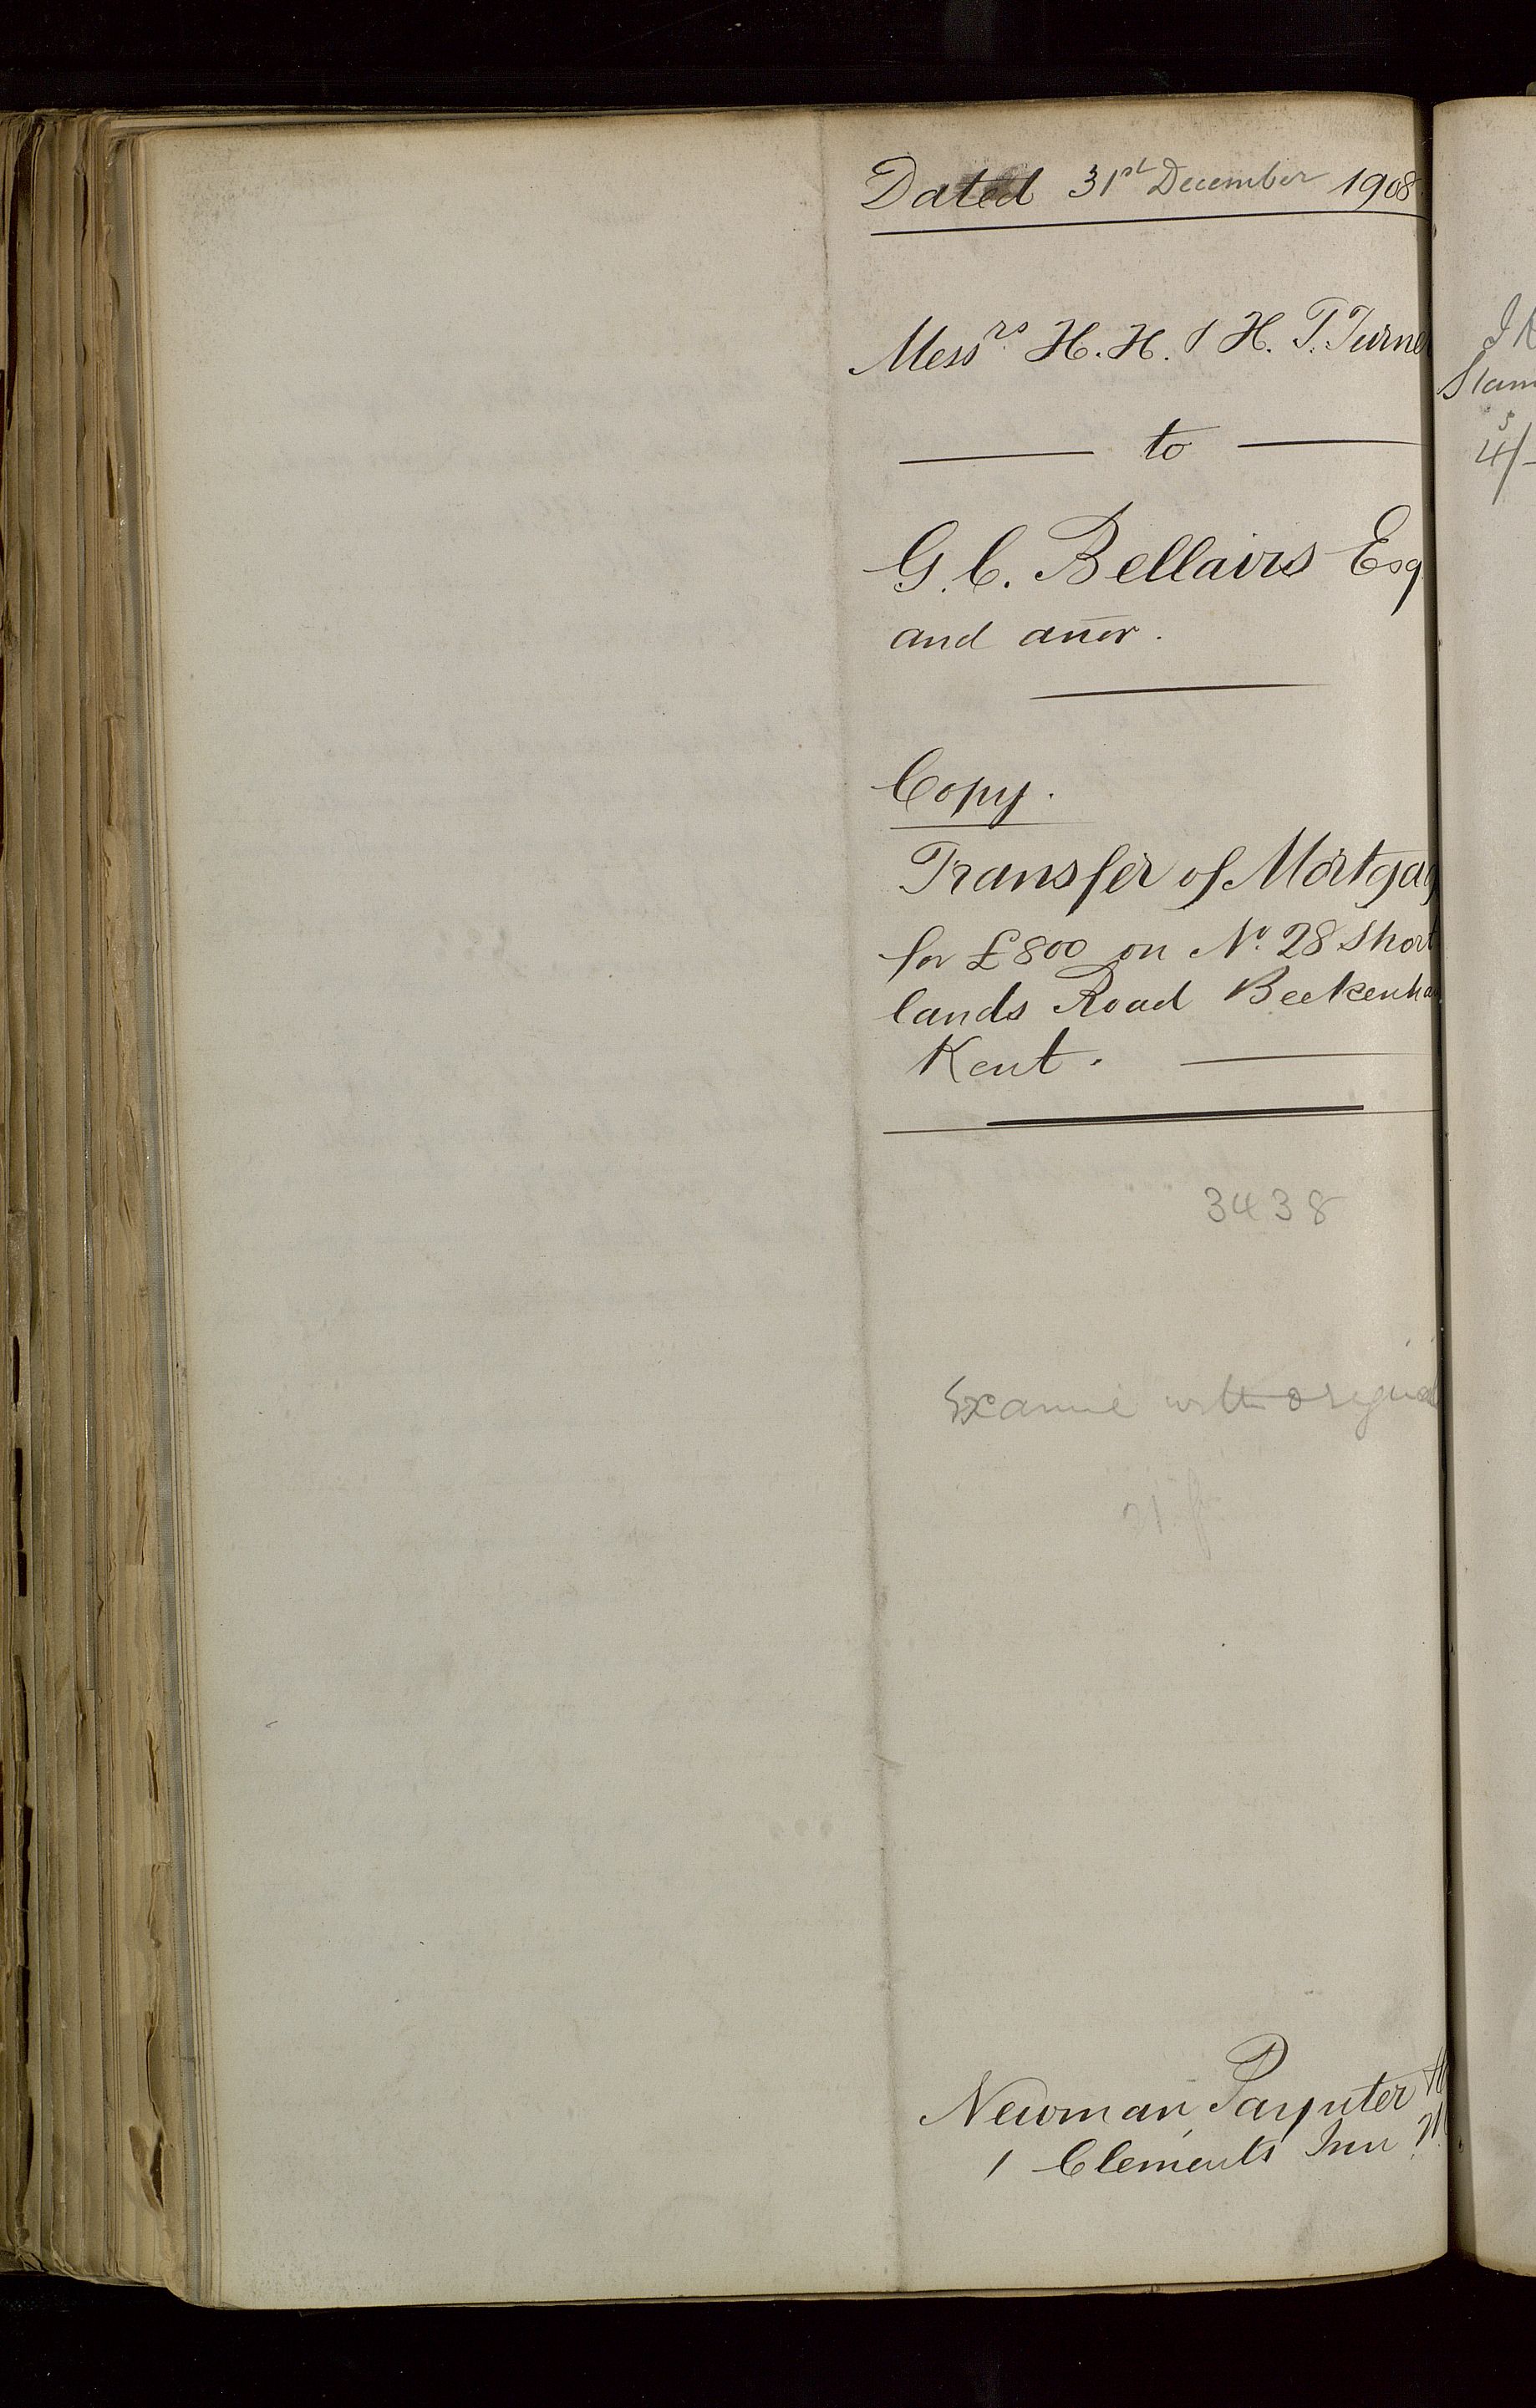 Dated 31st December 1908
Messrs. H. H. & H. T. Turne
to
G. C. Bellairs Esq
and anor.
Copy.
Transfer of Mortgag
for £800 on No. 28 Short
lands Road Beckenha
Kent.
3438
Examine with origina
21 f
Newman Paynter
1 Clements Inn
Stam
4/-